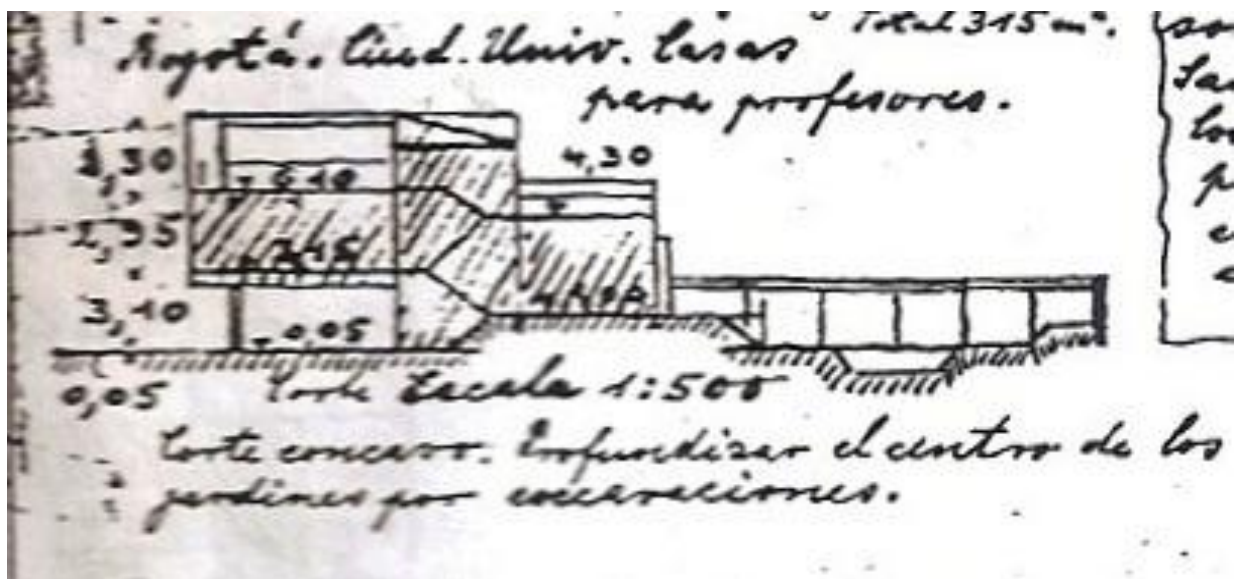 Total 315 m².
Bogotá. Ciud. Univ. Casas
para profesores.
4,30
2,30
6 10
2,95
3,10
0,05
0,05
Corte Escala 1:500
Corte concavo. Profundizar el centro de los
jardines por excavaciones.